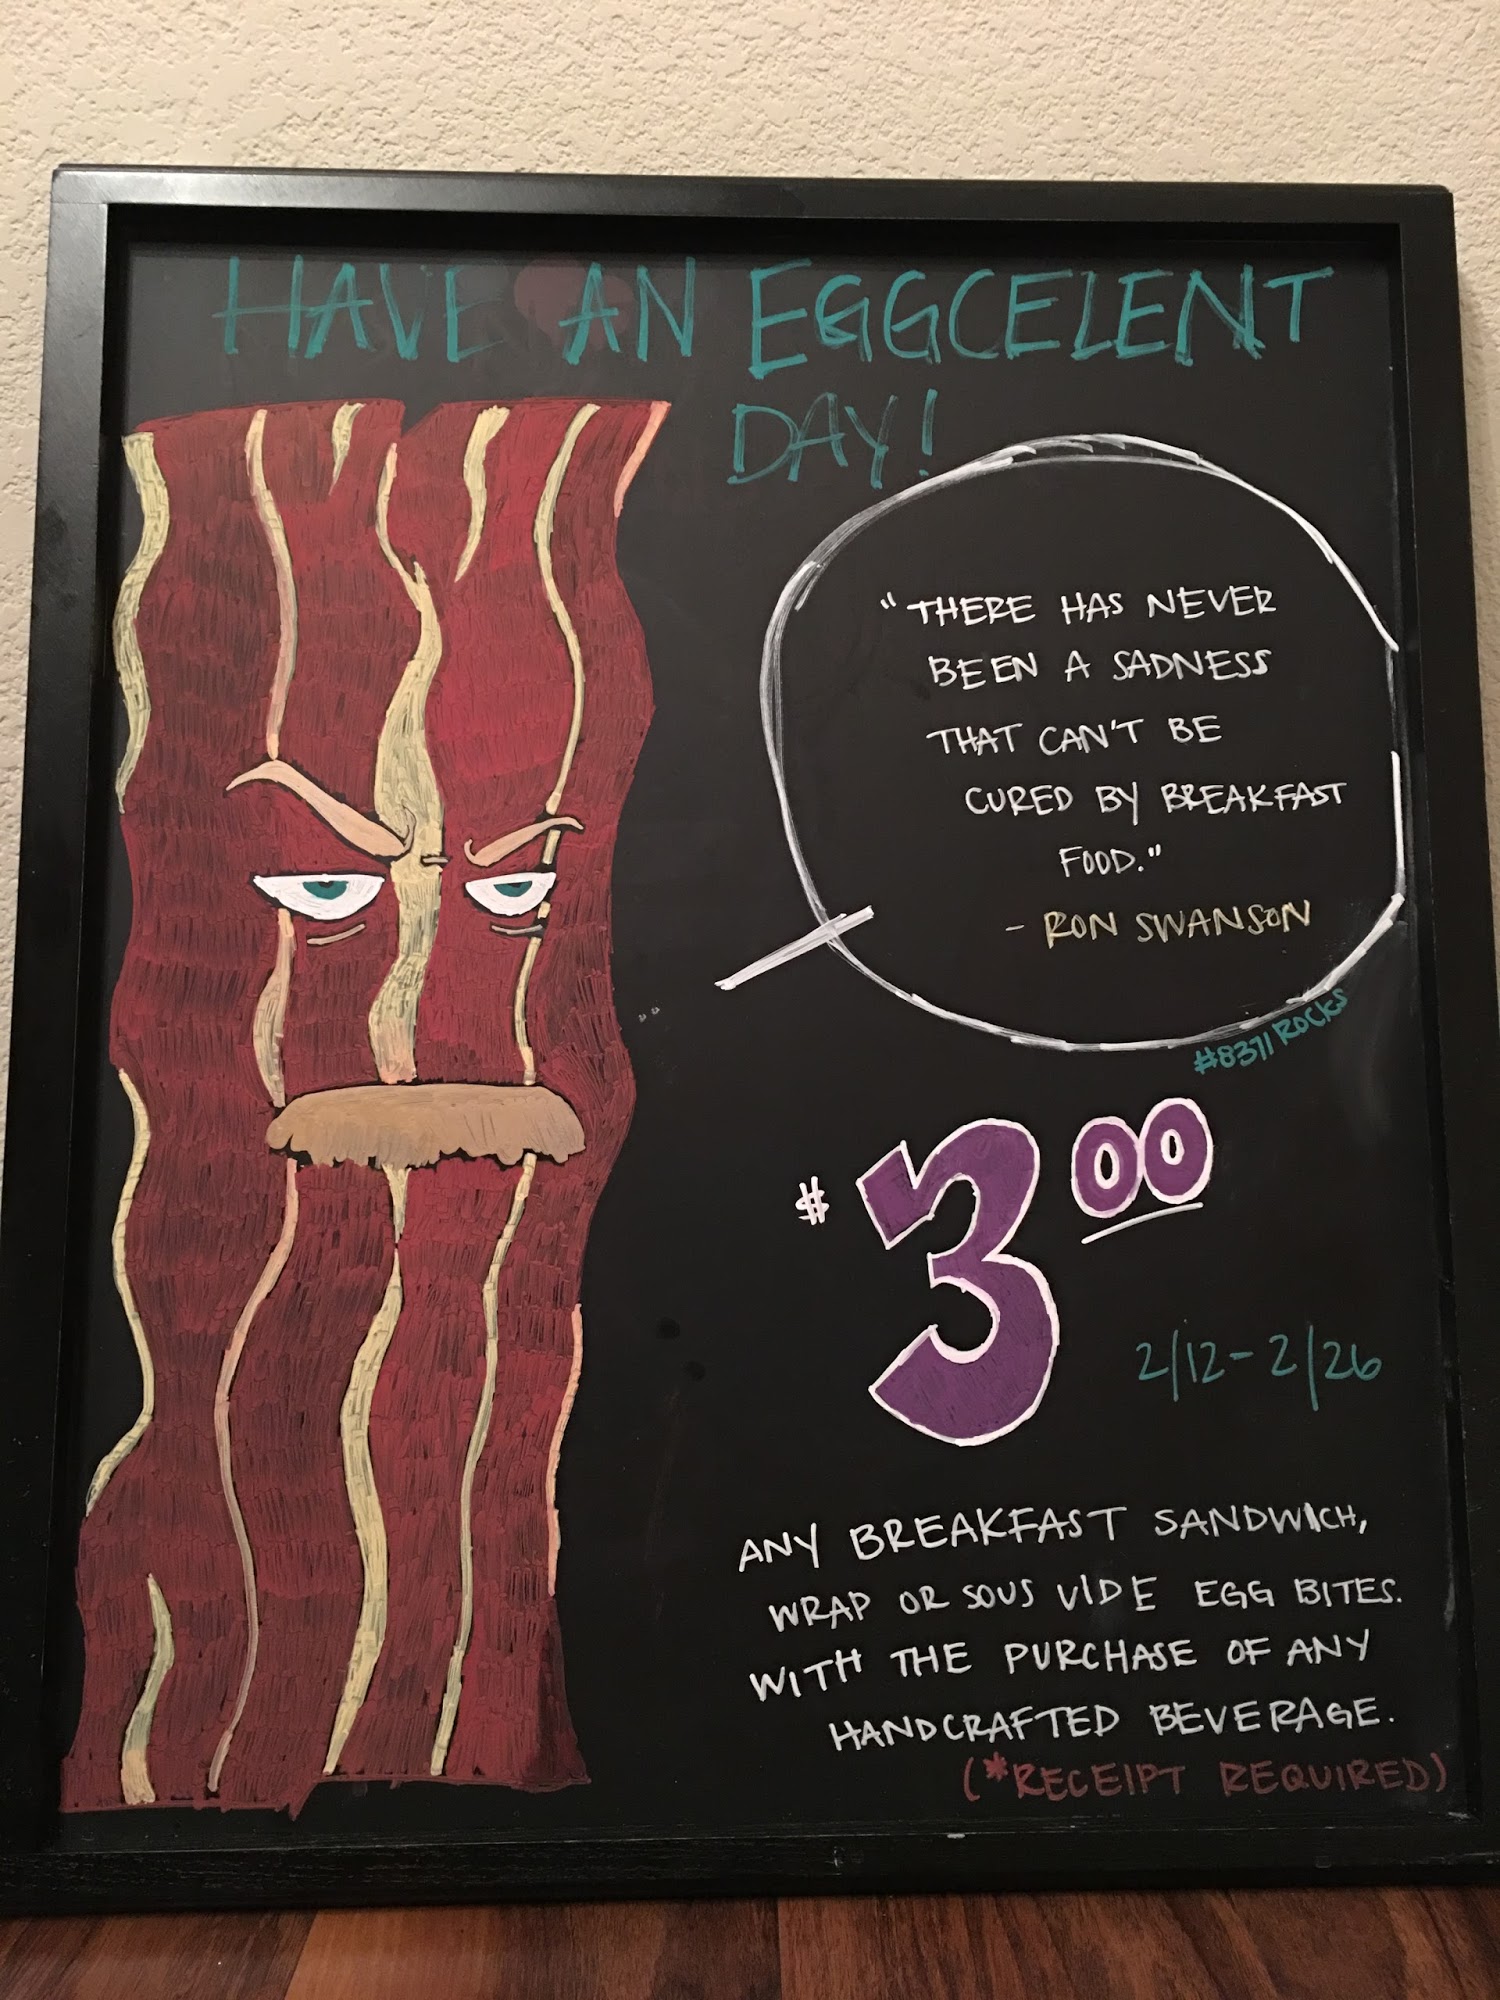 HAVE AN EGGCELENT
DAY!
"THERE HAS NEVER
BEEN A SADNESS
THAT CAN'T BE
CURED BY BREAKFAST
FOOD."
- RON SWANSON
#8371ROCKS
$3.00
2/12-2/26
ANY BREAKFAST SANDWICH,
WRAP OR SOUS VIDE EGG BITES.
WITH THE PURCHASE OF ANY
HANDCRAFTED BEVERAGE.
(*RECEIPT REQUIRED)